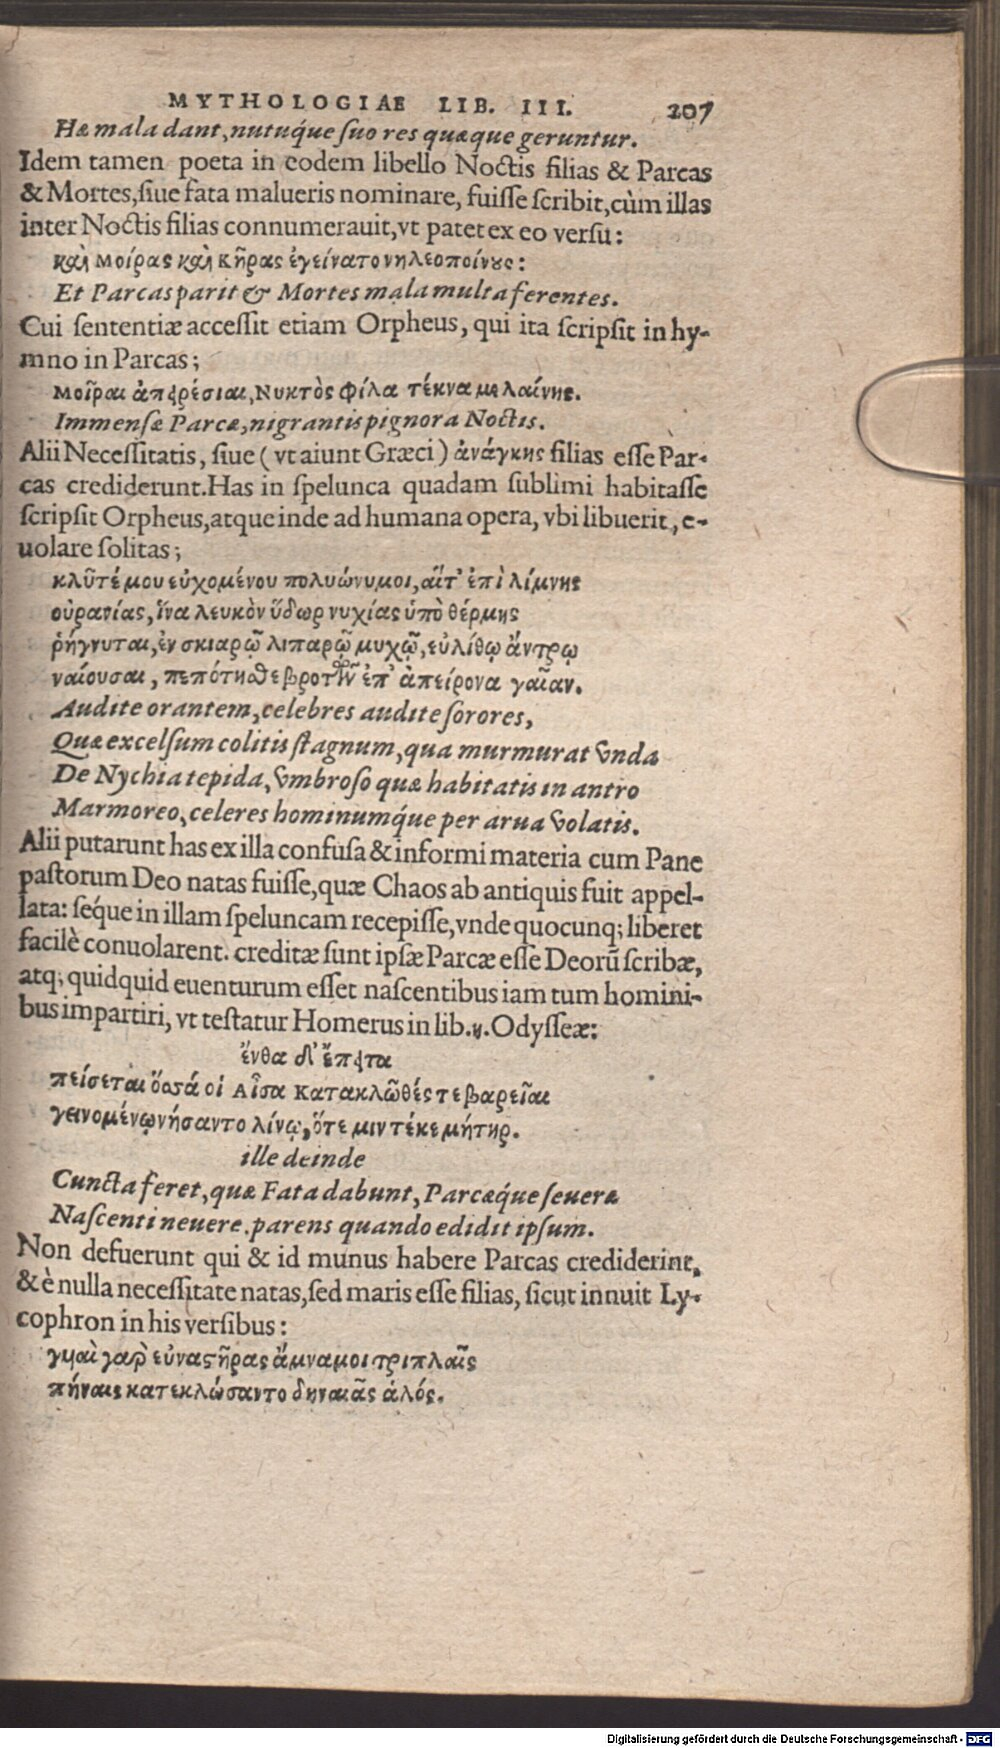 MYTHOLOGIAE LIB. III. 207
Hæ mala dant, nutuq́ue ſuo res quæque geruntur.
Idem tamen poeta in eodem libello Noctis filias & Parcas
& Mortes, ſiue fata malueris nominare, fuiſſe ſcribit, cùm illas
inter Noctis filias connumerauit, vt patet ex eo verſu:
καὶ Μοίρας καὶ Κῆρας ἐγείνατο νηλεοποίνους:
Et Parcas parit & Mortes mala multa ferentes.
Cui ſententiæ acceſſit etiam Orpheus, qui ita ſcripſit in hy-
mno in Parcas;
Μοῖραι ἀπειρέσιαι, Νυκτὸς φίλα τέκνα μελαίνης.
Immenſæ Parcæ, nigrantis pignora Noctis.
Alii Neceſſitatis, ſiue (vt aiunt Græci) ἀνάγκης filias eſſe Par-
cas crediderunt. Has in ſpelunca quadam ſublimi habitaſſe
ſcripſit Orpheus, atque inde ad humana opera, vbi libuerit, e-
uolare ſolitas;
κλῦτέ μου εὐχομένου πολυώνυμοι, αἵτ᾽ ἐπὶ λίμνης
οὐρανίας, ἵνα λευκὸν ὕδωρ νυχίας ὑπὸ θέρμης
ῥήγνυται, ἐν σκιαρῷ λιπαρῷ μυχῷ, εὐλίθῳ ἄντρῳ
ναίουσαι, πεπότησθε βροτῶν ἐπ᾽ ἀπείρονα γαῖαν.
Audite orantem, celebres audite ſorores,
Quæ excelſum colitis ſtagnum, qua murmurat vnda
De Nychia tepida, vmbroſo quæ habitatis in antro
Marmoreo, celeres hominumq́ue per arua volatis.
Alii putarunt has ex illa confuſa & informi materia cum Pane
paſtorum Deo natas fuiſſe, quæ Chaos ab antiquis fuit appel-
lata: ſeq́ue in illam ſpeluncam recepiſſe, vnde quocunq; liberet
facilè conuolarent. creditæ ſunt ipſæ Parcæ eſſe Deorū ſcribæ,
atq; quidquid euenturum eſſet naſcentibus iam tum homini-
bus impartiri, vt teſtatur Homerus in lib. η. Odyſſeæ:
ἔνθα δ᾽ ἔπειτα
πείσεται ὅσσά οἱ Αἶσα Κατακλῶθές τε βαρεῖαι
γεινομένῳ νήσαντο λίνῳ, ὅτε μιν τέκε μήτηρ.
ille deinde
Cuncta feret, quæ Fata dabunt, Parcæq́ue ſeueræ
Naſcenti neuere. parens quando edidit ipſum.
Non defuerunt qui & id munus habere Parcas crediderint,
& è nulla neceſſitate natas, ſed maris eſſe filias, ſicut innuit Ly-
cophron in his verſibus:
γυιαὶ γαρ εὐναστῆρας ἄμναμοι τριπλαῖς
πήναις κατεκλώσαντο δηναιᾶς ἁλός.
Digitalisierung gefördert durch die Deutsche Forschungsgemeinschaft - DFG